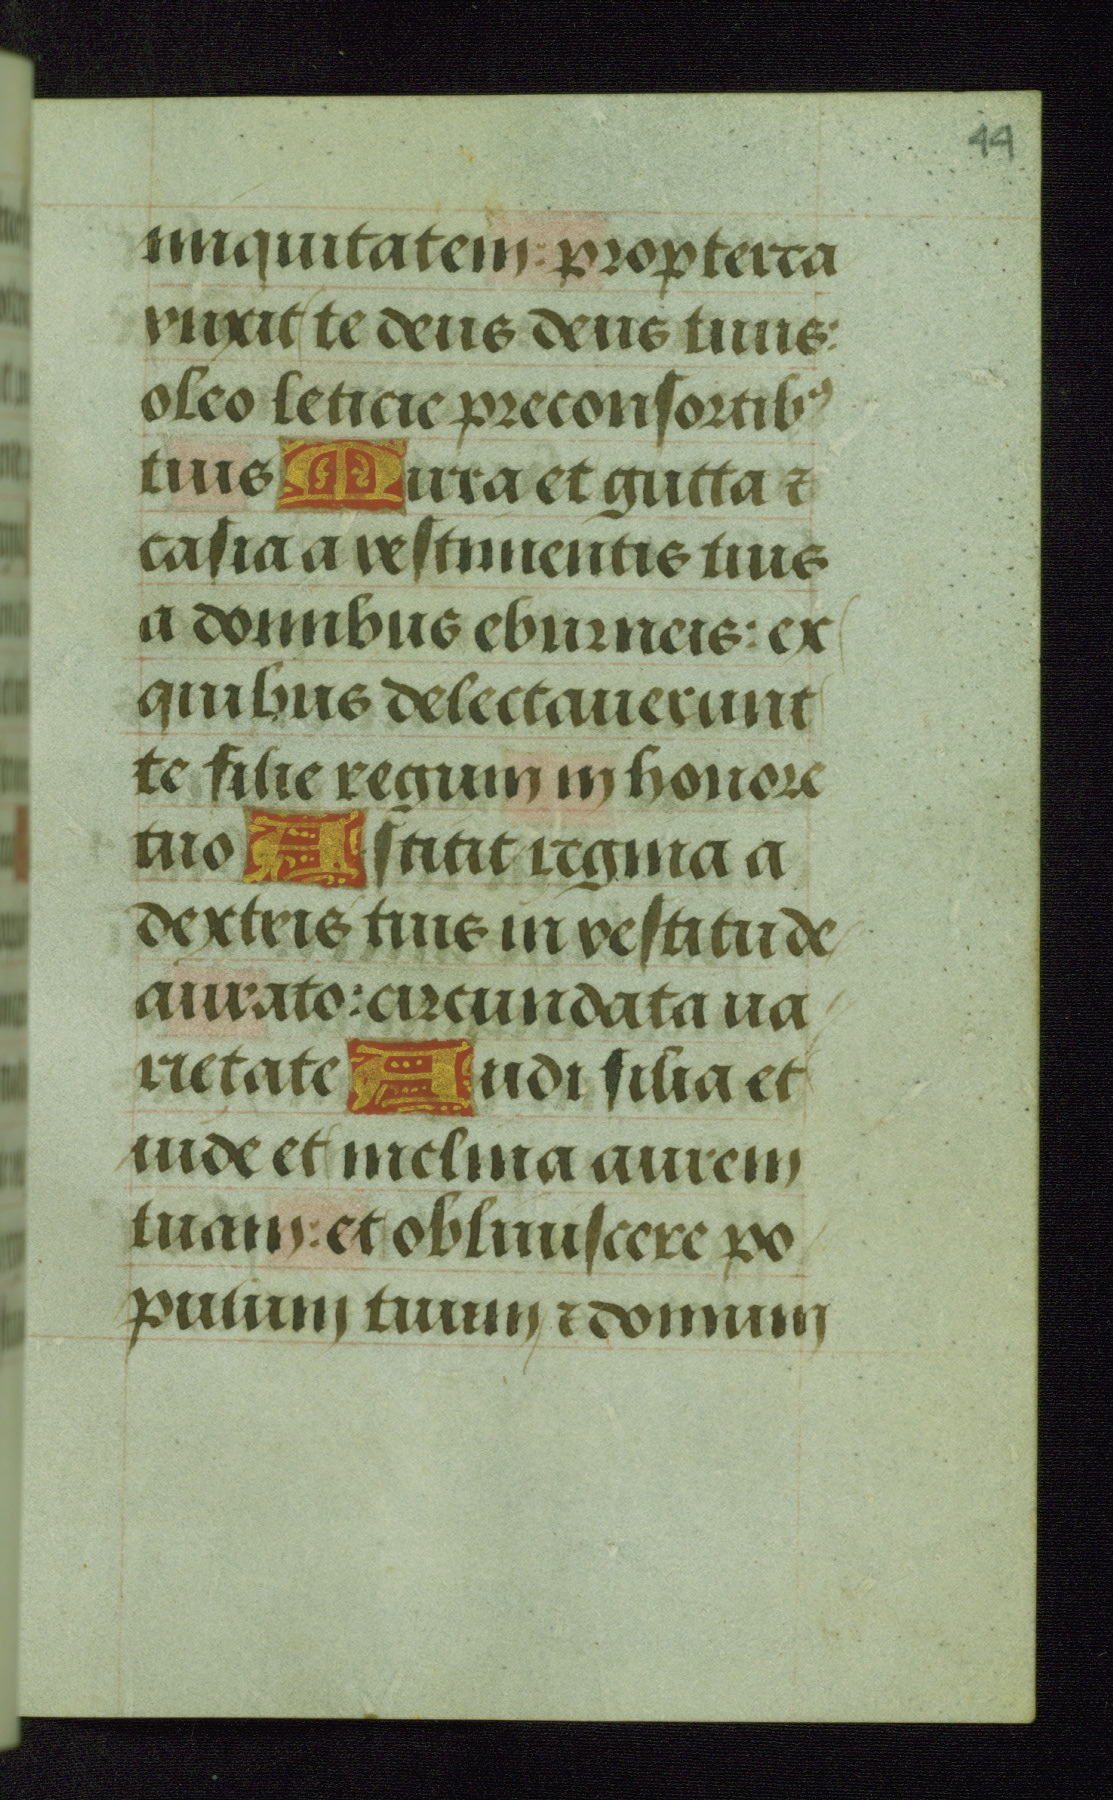 44
iniquitatem: propterea
vnxit te deus deus tuus:
oleo leticie preconsortibꝰ
tuis Mirra et gutta ⁊
casia a vestimentis tuis
a domibus eburneis: ex
quibus delectauerunt
te filie regum in honore
tuo Astitit regina a
dextris tuis in vestitu de
aurato: circundata ua
rietate Audi filia et
uide et inclina aurem
tuam: et obliuiscere po
pulum tuum ⁊ domum